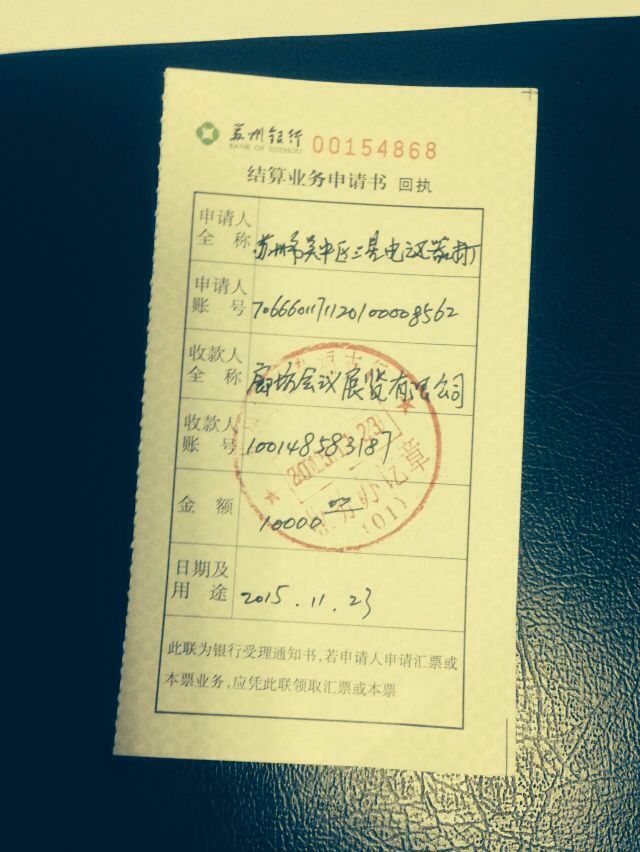 苏州银行 00154868
BANK OF SUZHOU
结算业务申请书 回执
申请人
全称 苏州市吴中区三星电
申请人
账号 7066601171120100008562
收款人
全称 廊坊会议展览有限公司
收款人
账号 100148583187
金额 10000
日期及
用途 2015.11.23
此联为银行受理通知书,若申请人申请汇票或
本票业务,应凭此联领取汇票或本票
2015.11.23
业务办讫章
(01)